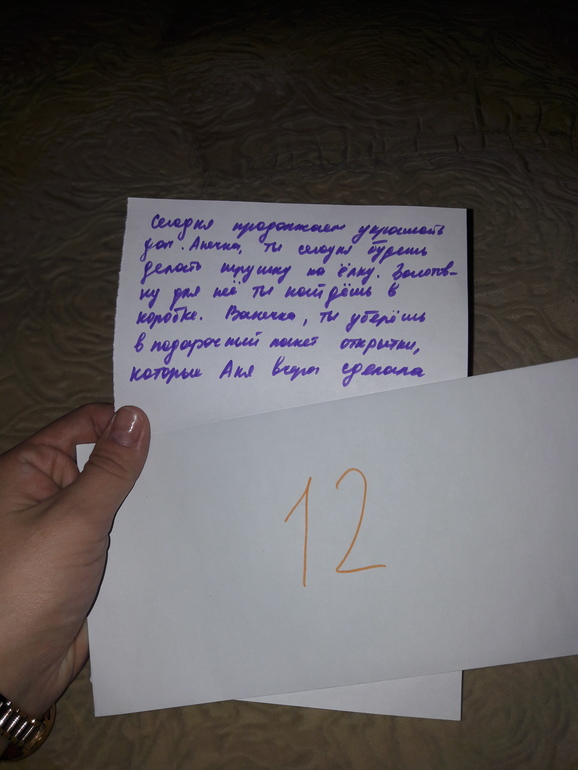 Сегодня продолжаем украшать
дом. Анечка, ты сегодня будешь
делать игрушку на ёлку. Заготов-
ку для неё ты найдёшь в
коробке. Ванечка, ты уберёшь
в подарочный пакет открытки,
которые Аня вчера сделала
12